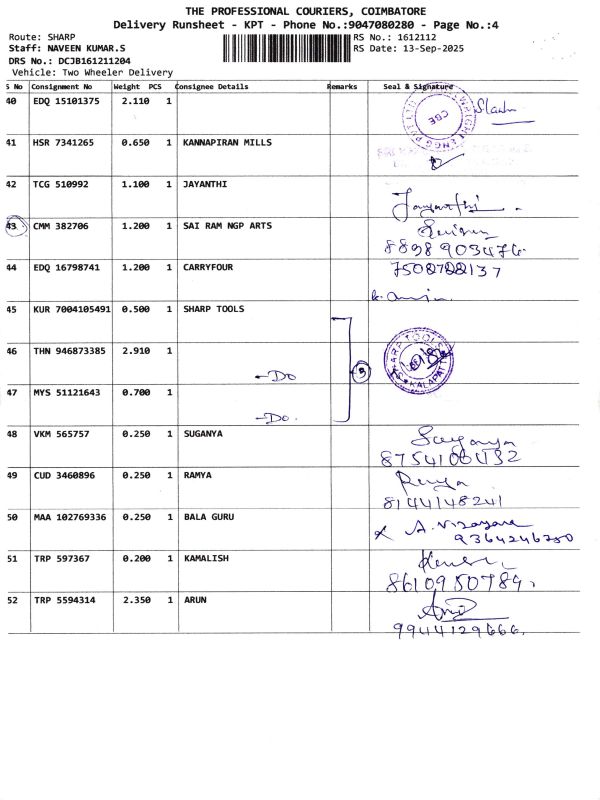 THE PROFESSIONAL COURIERS, COIMBATORE
Delivery Runsheet - KPT - Phone No.:9047080280 - Page No.:4
Route: SHARP RS No.: 1612112
Staff: NAVEEN KUMAR.S RS Date: 13-Sep-2025
DRS No.: DCJB161211204
Vehicle: Two Wheeler Delivery
S No Consignment No Weight PCS Consignee Details Remarks Seal & Signature
40 EDQ 15101375 2.110 1
41 HSR 7341265 0.650 1 KANNAPIRAN MILLS
42 TCG 510992 1.100 1 JAYANTHI
Jayanthi
43 CMM 382706 1.200 1 SAI RAM NGP ARTS
8898903476
44 EDQ 16798741 1.200 1 CARRYFOUR
45 KUR 7004105491 0.500 1 SHARP TOOLS
SHARP TOOLS
KALAPATTI
46 THN 946873385 2.910 1
-Do
3
47 MYS 51121643 0.700 1
-Do.
48 VKM 565757 0.250 1 SUGANYA
Suganya
8754106432
49 CUD 3460896 0.250 1 RAMYA
Ramya
8144148241
50 MAA 102769336 0.250 1 BALA GURU
9364246750
51 TRP 597367 0.200 1 KAMALISH
8610950789.
52 TRP 5594314 2.350 1 ARUN
9944129666.